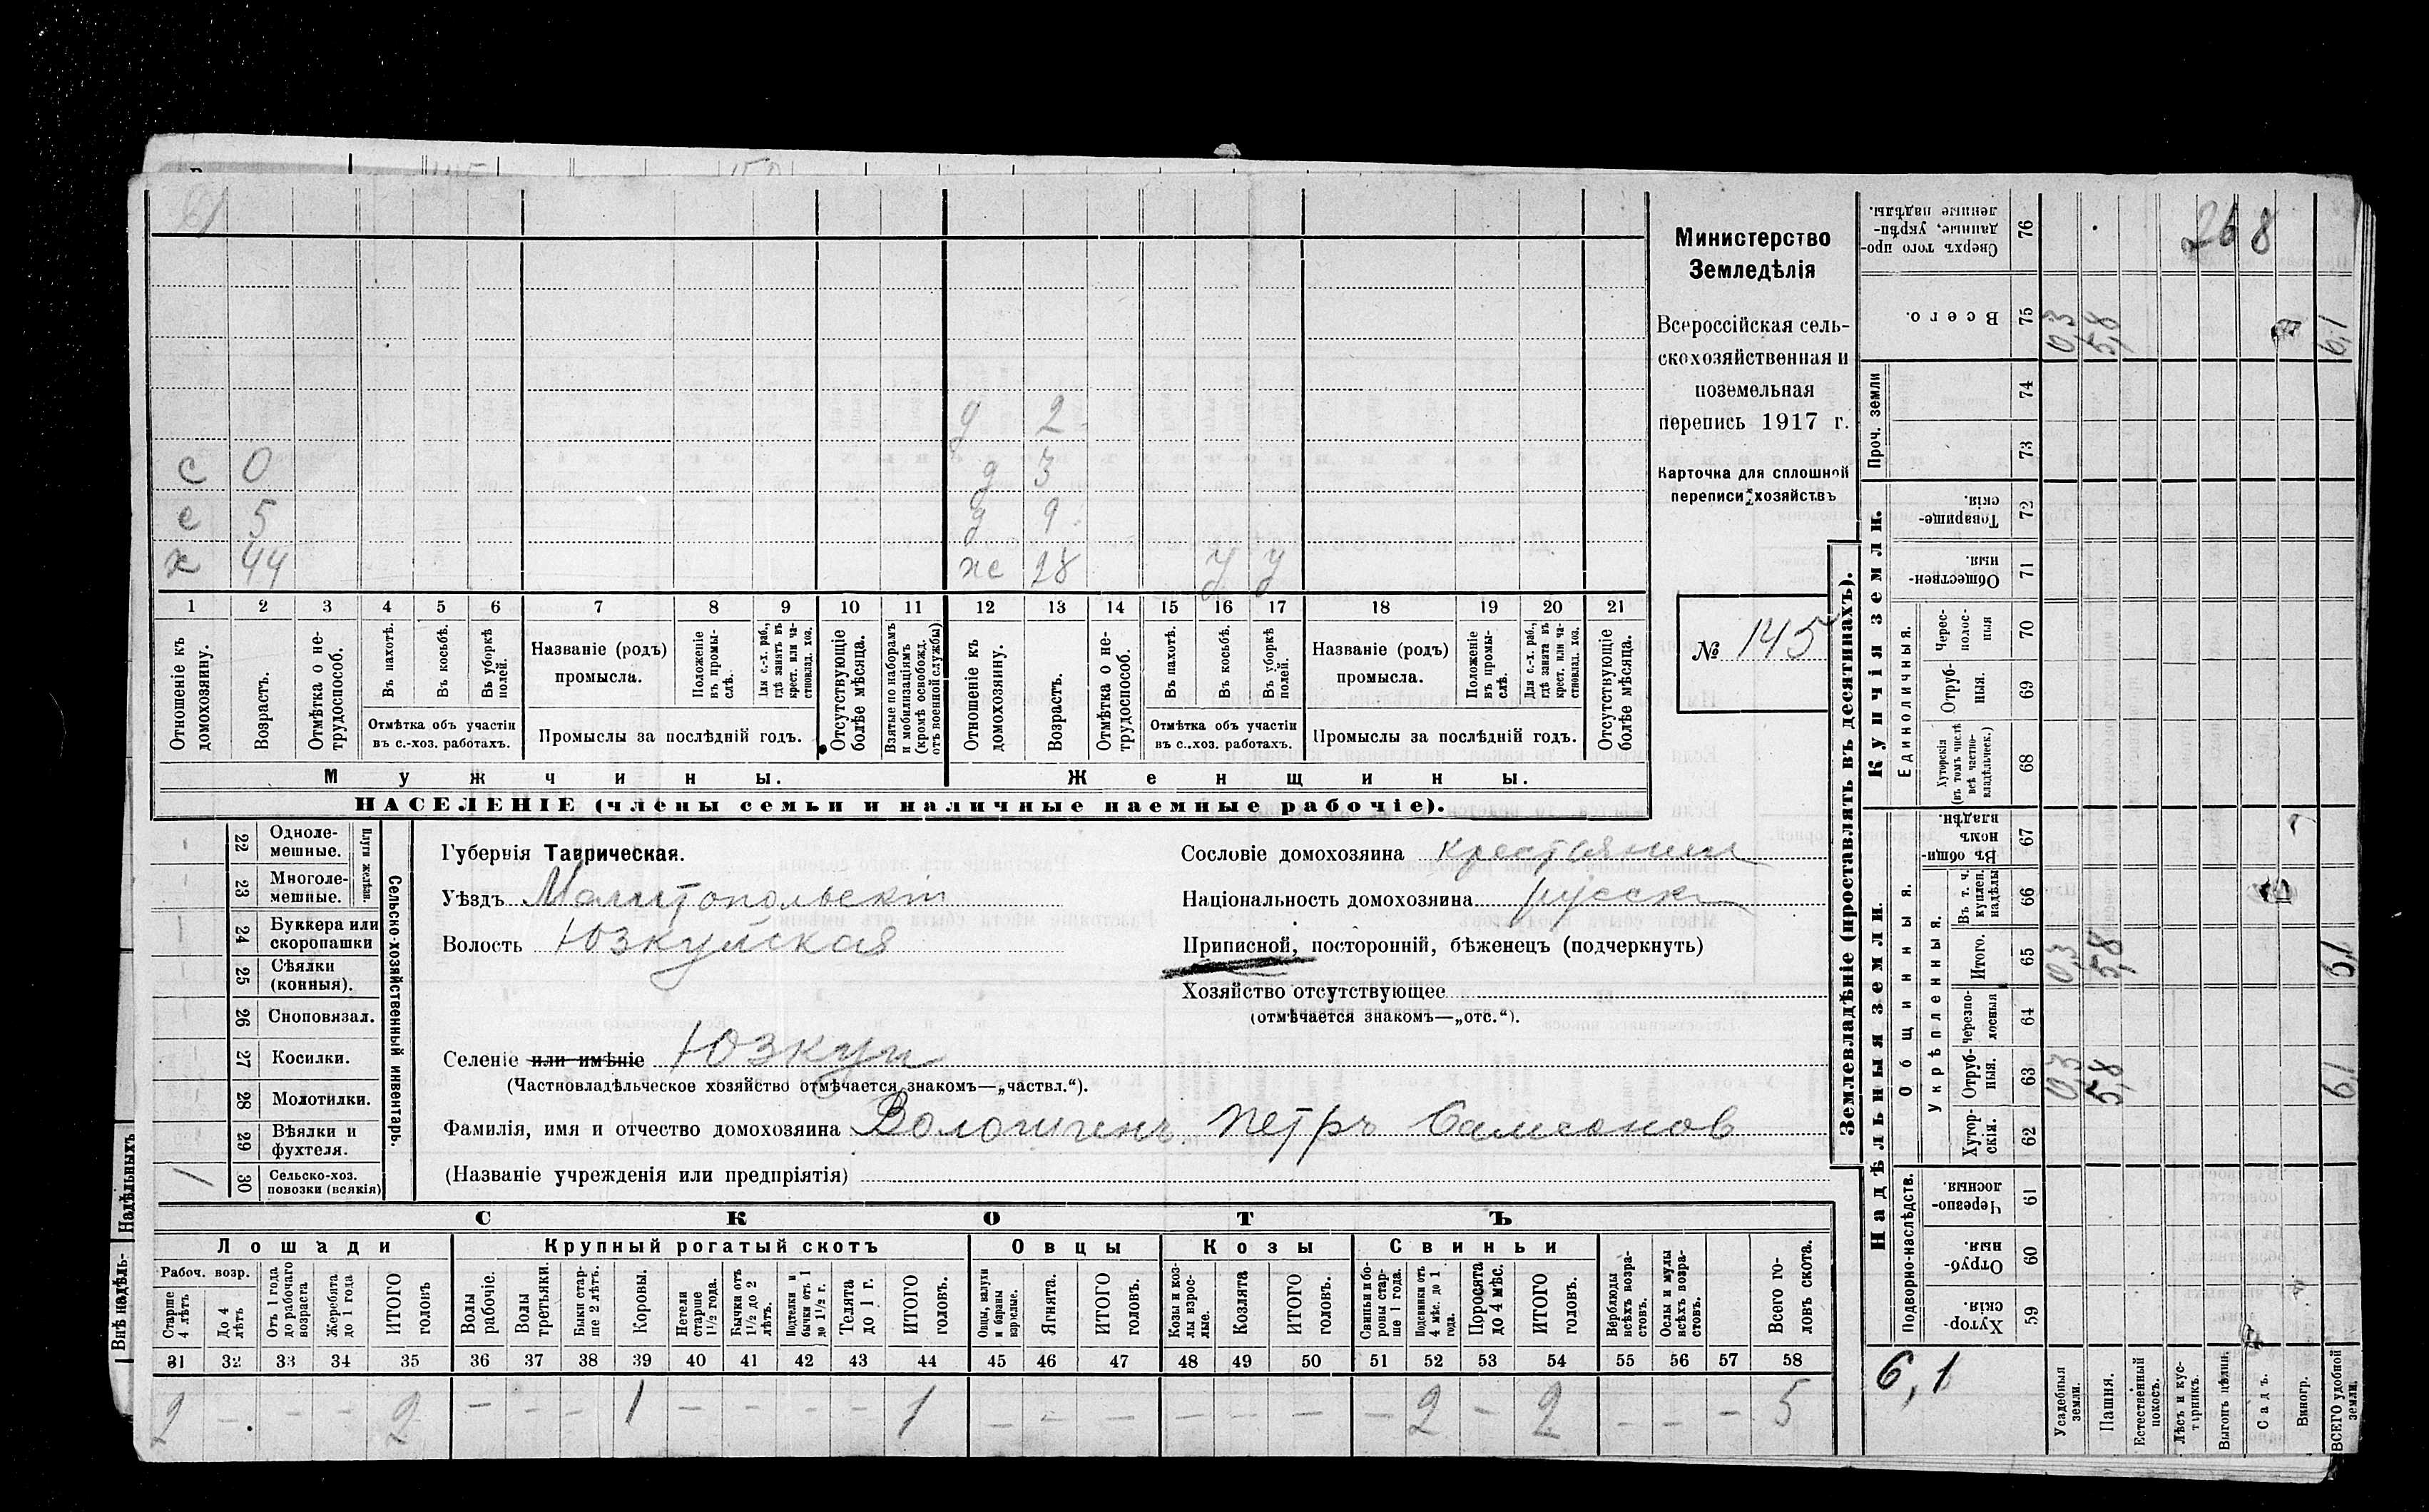 Министерство
Земледѣлія
Всероссійская сель-
скохозяйственная и
поземельная
перепись 1917 г.
Карточка для сплошной
переписи хозяйствъ
№ 145
д 2
с 0 д 3
с 5 д 9
х 44 ж 28 у у
1 2 3 4 5 6 7 8 9 10 11 12 13 14 15 16 17 18 19 20 21
Отношеніе къ домохозяину.
Возрастъ.
Отмѣтка о не-трудоспособ.
Въ пахотѣ.
Въ косьбѣ.
Въ уборкѣ полей.
Отмѣтка объ участіи
въ с.-хоз. работахъ.
Названіе (родъ)
промысла.
Положеніе въ промы-слѣ.
Для с.-х. раб., гдѣ занятъ въ крест. или ча-стновлад. хоз.
Промыслы за послѣдній годъ.
Отсутствующіе болѣе мѣсяца.
Взятые по наборамъ и мобилизаціямъ (кромѣ освобожд. отъ военной службы)
Отношеніе къ домохозяину.
Возрастъ.
Отмѣтка о не-трудоспособ.
Въ пахотѣ.
Въ косьбѣ.
Въ уборкѣ полей.
Отмѣтка объ участіи
въ с.-хоз. работахъ.
Названіе (родъ)
промысла.
Положеніе въ промы-слѣ.
Для с.-х. раб., гдѣ занята въ крест. или ча-стновлад. хоз.
Промыслы за послѣдній годъ.
Отсутствующіе болѣе мѣсяца.
Мужчины. Женщины.
НАСЕЛЕНІЕ (члены семьи и наличные наемные рабочіе).
Сельско-хозяйственный инвентарь.
Плуги желѣзн.
22 Одноле-мешные.
23 Многоле-мешные.
24 Буккера или скоропашки
25 Сѣялки (конныя).
26 Сноповязал.
27 Косилки.
28 Молотилки.
29 Вѣялки и фухтеля.
1 30 Сельско-хоз. повозки (всякія)
Губернія Таврическая.
Уѣздъ Мелитопольскій
Волость Юзкуйская
Селеніе или имѣніе Юзкуи
(Частновладѣльческое хозяйство отмѣчается знакомъ—„частвл.“).
Фамилія, имя и отчество домохозяина Волошинъ Петръ Самсонов
(Названіе учрежденія или предпріятія)
Сословіе домохозяина крестьянин
Національность домохозяина русск
Приписной, посторонній, бѣженецъ (подчеркнуть)
Хозяйство отсутствующее
(отмѣчается знакомъ—„отс.“).
СКОТЪ
Лошади Крупный рогатый скотъ Овцы Козы Свиньи
Рабоч. возр.
Старше 4 лѣтъ
До 4 лѣтъ
Отъ 1 года до рабочаго возраста
Жеребята до 1 года
ИТОГО головъ
Волы рабочіе.
Волы третьяки.
Быки стар-ше 2 лѣтъ.
Коровы.
Нетели старше 1 1/2 года.
Бычки отъ 1 1/2 до 2 лѣтъ.
Подтелки и бычки отъ 1 до 1 1/2 г.
Телята до 1 г.
ИТОГО головъ.
Овцы, валухи и бараны взрослые.
Ягнята.
ИТОГО головъ.
Козы и коз-лы взрос-лые.
Козлята
ИТОГО головъ.
Свиньи и бо-ровы стар-ше 1 года.
Подсвинки отъ 4 мѣс. до 1 года.
Поросята до 4 мѣс.
ИТОГО головъ.
Верблюды всѣхъ возра-стовъ.
Ослы и мулы всѣхъ возра-стовъ.
Всего го-ловъ скота.
31 32 33 34 35 36 37 38 39 40 41 42 43 44 45 46 47 48 49 50 51 52 53 54 55 56 57 58
2 - - - 2 - - - 1 - - - - 1 - - - - - - - 2 - 2 - - - 5
Землевладѣніе (проставлять въ десятинахъ).
Надѣльныя земли. Купчія земли.
Подворно-наслѣдств.
Общинныя.
Укрѣпленныя.
Единоличныя.
Проч. земли
59 Хутор-скія.
60 Отруб-ныя.
61 Черезпо-лосныя.
62 Хутор-скія.
63 Отруб-ныя. 0,3 5,8 6,1
64 черезпо-лосныя
65 Итого. 0,3 5,8 6,1
66 Въ т. ч. куплен. надѣлы
67 Въ общин-номъ владѣн.
68 Хуторскія (въ томъ числѣ всѣ частно-владѣльческ.)
69 Отруб-ныя.
70 Черес-полос-ныя
71 Обществен-ныя.
72 Товарище-скія.
73
74
75 Всего. 0,3 5,8 6,1
76 Сверхъ того про-данные, укрѣп-ленные надѣлы.
268
6,1
Усадебныя земли.
Пашня.
Естественный покосъ.
Лѣсъ и кус-тарникъ.
Выгонъ цѣлин.
Садъ.
Виногр.
ВСЕГО удобной земли.
Надѣльныхъ
Внѣ надѣль-